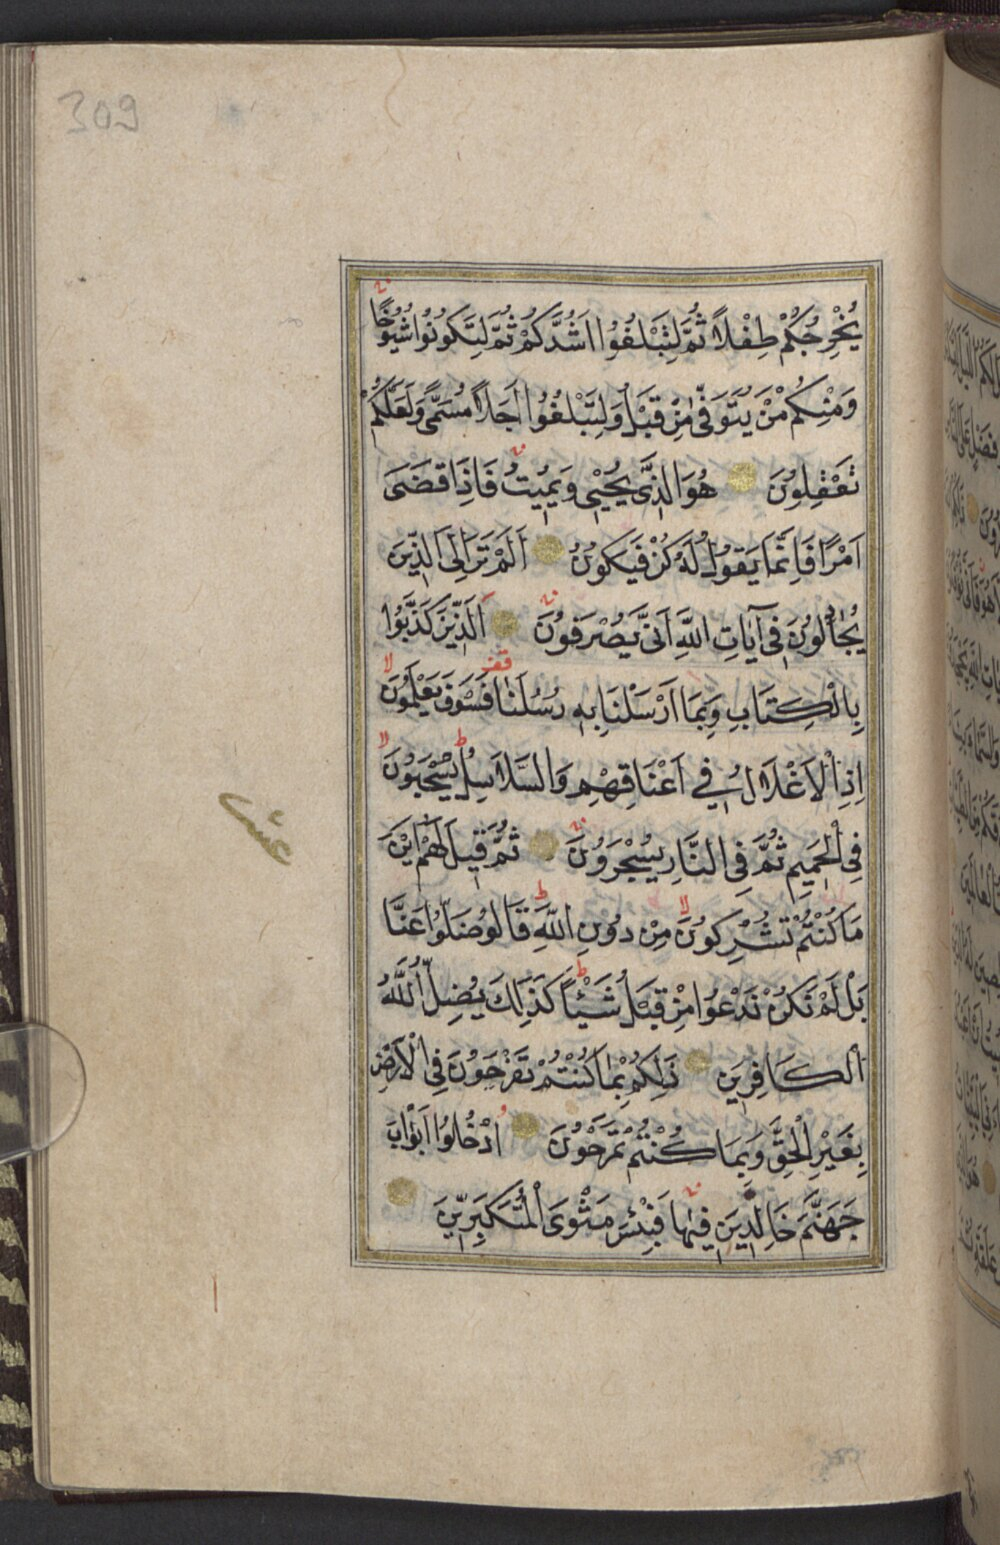 309
يُخْرِجُكُمْ طِفْلًا ثُمَّ لِتَبْلُغُوا اَشُدَّكُمْ ثُمَّ لِتَكُونُوا شُيُوخًا
وَمِنْكُمْ مَنْ يُتَوَفّٰى مِنْ قَبْلُ وَلِتَبْلُغُوا اَجَلًا مُسَمًّى وَلَعَلَّكُمْ
تَعْقِلُونَ هُوَ الَّذِي يُحْيِي وَيُمِيتُ فَاِذَا قَضٰى
اَمْرًا فَاِنَّمَا يَقُولُ لَهُ كُنْ فَيَكُونُ اَلَمْ تَرَ اِلَى الَّذِينَ
يُجَادِلُونَ فِي آيَاتِ اللّٰهِ اَنّٰى يُصْرَفُونَ اَلَّذِينَ كَذَّبُوا
بِالْكِتَابِ وَبِمَا اَرْسَلْنَا بِهِ رُسُلَنَا فَسَوْفَ يَعْلَمُونَ
اِذِ الْاَغْلَالُ فِي اَعْنَاقِهِمْ وَالسَّلَاسِلُ يُسْحَبُونَ
فِي الْحَمِيمِ ثُمَّ فِي النَّارِ يُسْجَرُونَ ثُمَّ قِيلَ لَهُمْ اَيْنَ
عشر
مَا كُنْتُمْ تُشْرِكُونَ مِنْ دُونِ اللّٰهِ قَالُوا ضَلُّوا عَنَّا
بَلْ لَمْ نَكُنْ نَدْعُوا مِنْ قَبْلُ شَيْئًا كَذٰلِكَ يُضِلُّ اللّٰهُ
الْكَافِرِينَ ذٰلِكُمْ بِمَا كُنْتُمْ تَفْرَحُونَ فِي الْاَرْضِ
بِغَيْرِ الْحَقِّ وَبِمَا كُنْتُمْ تَمْرَحُونَ اُدْخُلُوا اَبْوَابَ
جَهَنَّمَ خَالِدِينَ فِيهَا فَبِئْسَ مَثْوَى الْمُتَكَبِّرِينَ